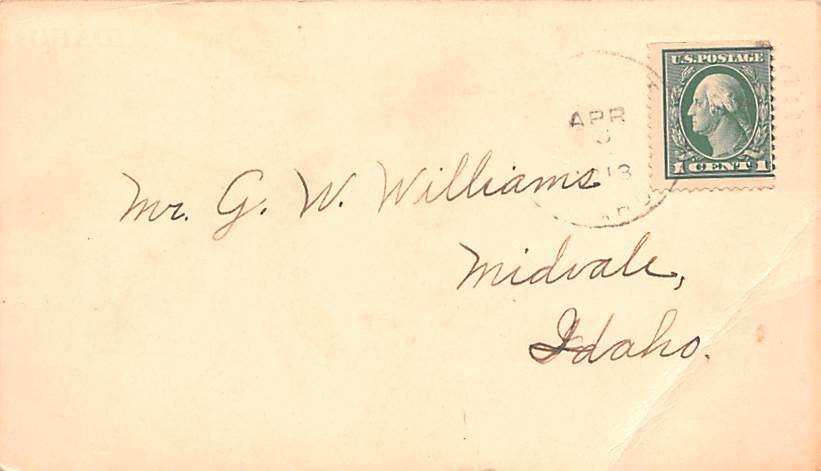 U.S.POSTAGE
1 CENT 1
APR
13
Mr. G. W. Williams
Midvale,
Idaho.